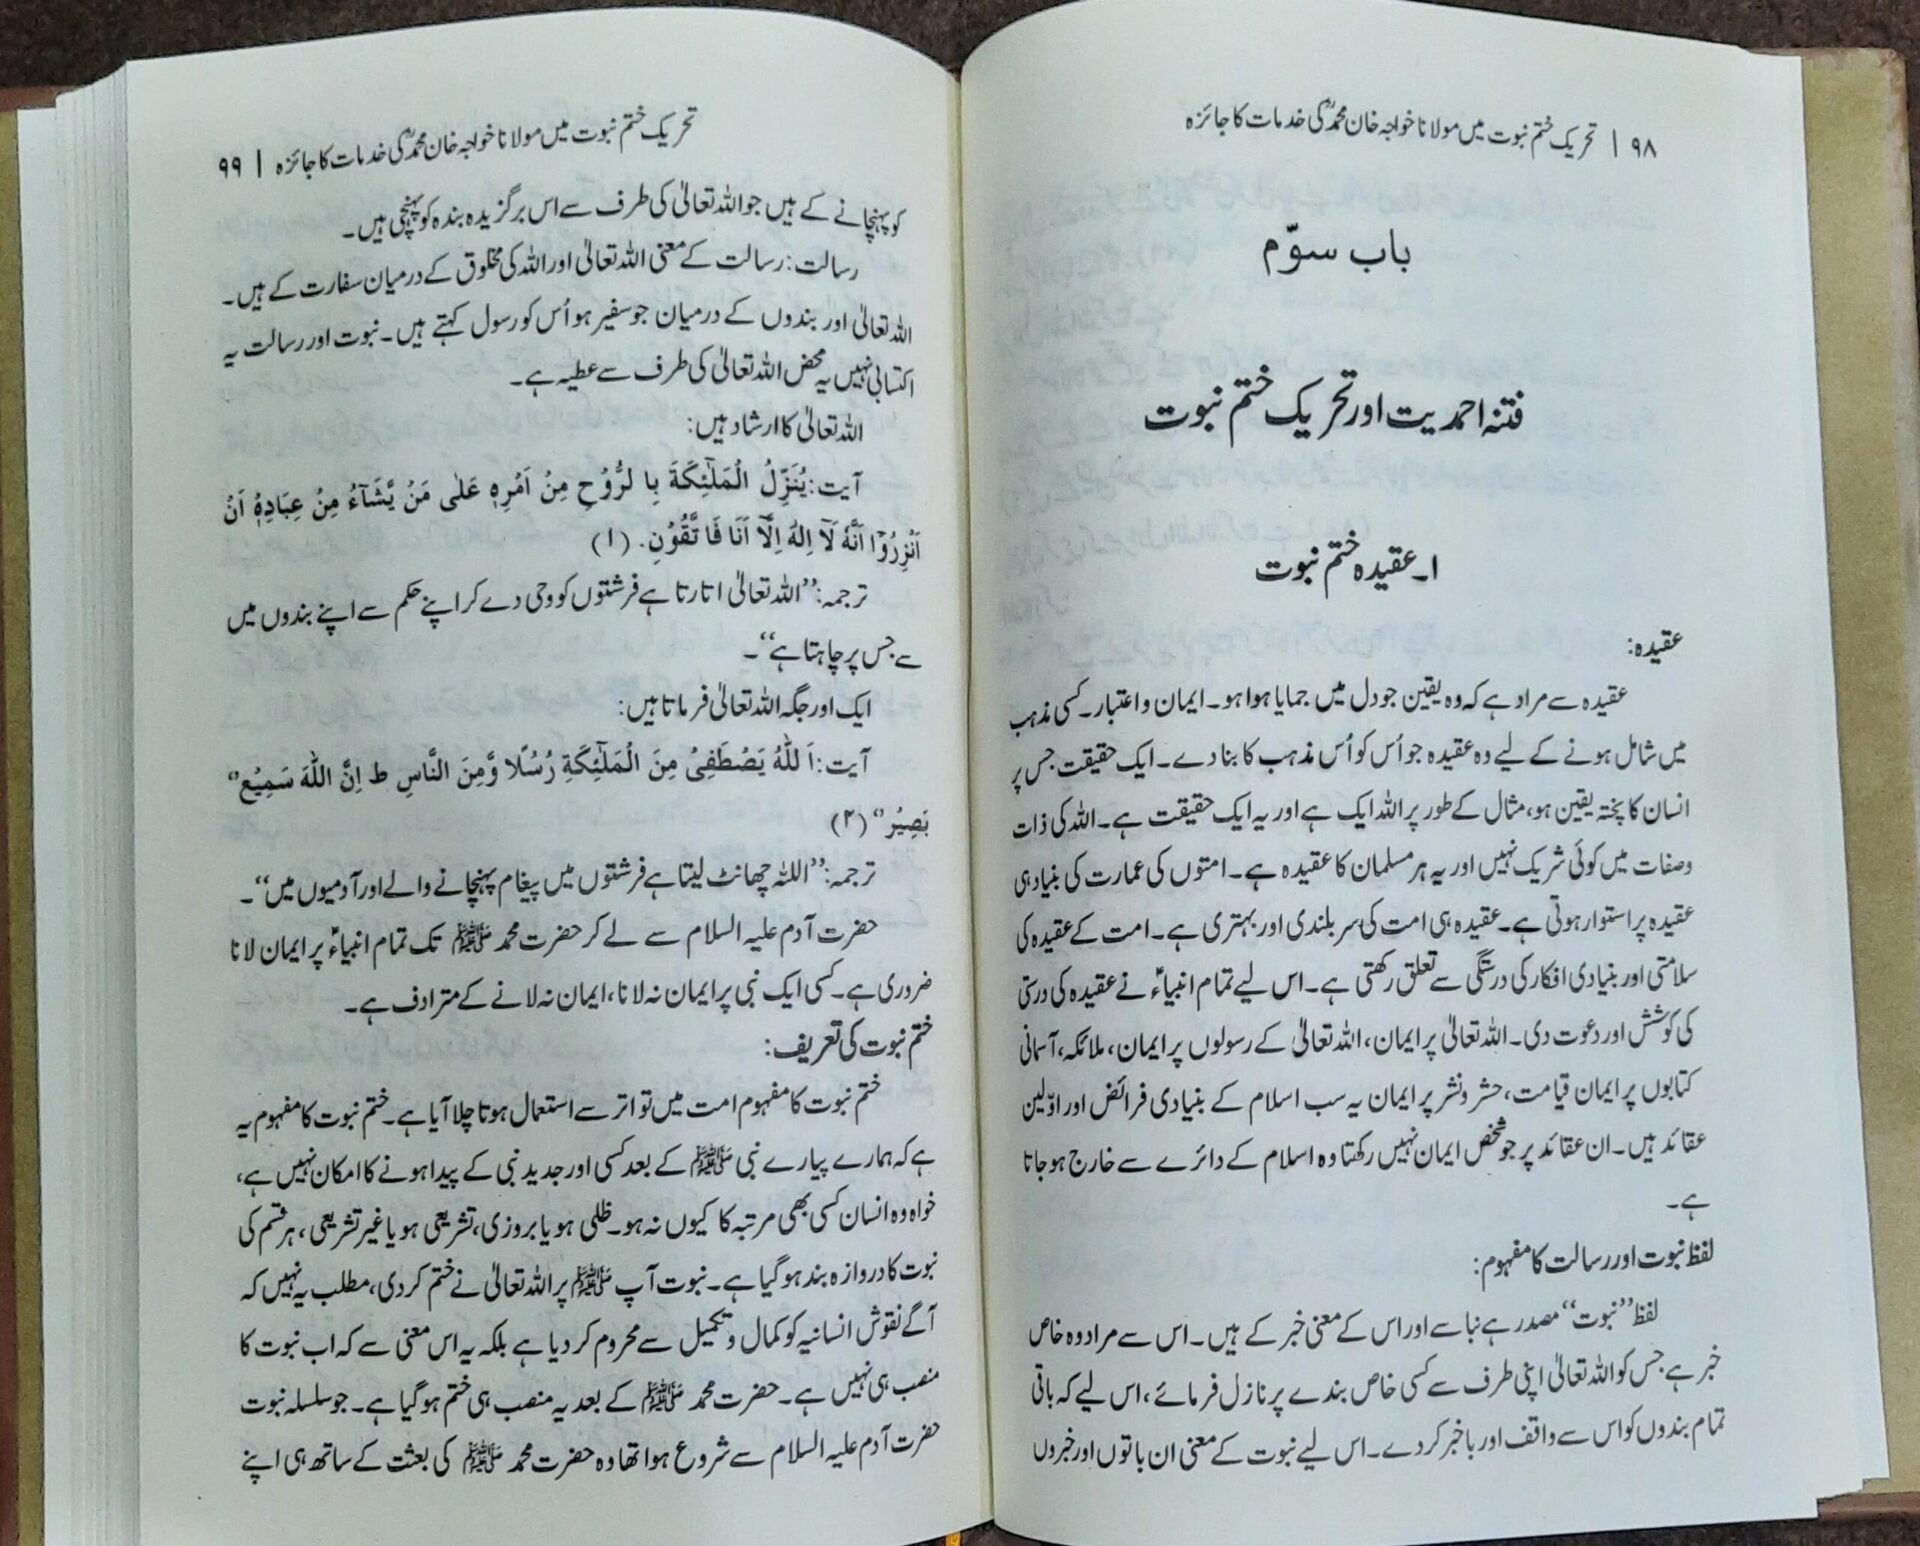 ۹۸ | تحریک ختم نبوت میں مولانا خواجہ خان محمدؒ کی خدمات کا جائزہ
باب سوّم
فتنہ احمدیت اور تحریک ختم نبوت
۱۔ عقیدہ ختم نبوت
عقیدہ:
عقیدہ سے مراد ہے کہ وہ یقین جو دل میں جمایا ہوا ہو۔ ایمان و اعتبار۔ کسی مذہب
میں شامل ہونے کے لیے وہ عقیدہ جو اُس کو اُس مذہب کا بنا دے۔ ایک حقیقت جس پر
انسان کا پختہ یقین ہو، مثال کے طور پر اللہ ایک ہے اور یہ ایک حقیقت ہے۔ اللہ کی ذات
وصفات میں کوئی شریک نہیں اور یہ ہر مسلمان کا عقیدہ ہے۔ امتوں کی عمارت کی بنیاد ہی
عقیدہ پر استوار ہوتی ہے۔ عقیدہ ہی امت کی سربلندی اور بہتری ہے۔ امت کے عقیدہ کی
سلامتی اور بنیادی افکار کی درستگی سے تعلق رکھتی ہے۔ اس لیے تمام انبیاءؑ نے عقیدہ کی درستی
کی کوشش اور دعوت دی۔ اللہ تعالیٰ پر ایمان، اللہ تعالیٰ کے رسولوں پر ایمان، ملائکہ، آسمانی
کتابوں پر ایمان قیامت، حشر و نشر پر ایمان یہ سب اسلام کے بنیادی فرائض اور اوّلین
عقائد ہیں۔ ان عقائد پر جو شخص ایمان نہیں رکھتا وہ اسلام کے دائرے سے خارج ہو جاتا
ہے۔
لفظ نبوت اور رسالت کا مفہوم:
لفظ ’’نبوت‘‘ مصدر ہے نبا سے اور اس کے معنی خبر کے ہیں۔ اس سے مراد وہ خاص
خبر ہے جس کو اللہ تعالیٰ اپنی طرف سے کسی خاص بندے پر نازل فرمائے، اس لیے کہ باقی
تمام بندوں کو اس سے واقف اور باخبر کر دے۔ اس لیے نبوت کے معنی ان باتوں اور خبروں
تحریک ختم نبوت میں مولانا خواجہ خان محمدؒ کی خدمات کا جائزہ | ۹۹
کو پہنچانے کے ہیں جو اللہ تعالیٰ کی طرف سے اس برگزیدہ بندہ کو پہنچی ہیں۔
رسالت: رسالت کے معنی اللہ تعالیٰ اور اللہ کی مخلوق کے درمیان سفارت کے ہیں۔
اللہ تعالیٰ اور بندوں کے درمیان جو سفیر ہو اُس کو رسول کہتے ہیں۔ نبوت اور رسالت یہ
اکتسابی نہیں یہ محض اللہ تعالیٰ کی طرف سے عطیہ ہے۔
اللہ تعالیٰ کا ارشاد ہیں:
آیت: یُنَزِّلُ الْمَلٰٓئِکَةَ بِا لرُّوْحِ مِنْ اَمْرِہٖ عَلٰی مَنْ یَّشَآءُ مِنْ عِبَادِہٖٓ اَنْ
اَنْزِرُوْٓا اَنَّہٗ لَآ اِلٰہَ اِلَّآ اَنَا فَا تَّقُوْنِ. (۱)
ترجمہ: ’’اللہ تعالیٰ اتارتا ہے فرشتوں کو وحی دے کر اپنے حکم سے اپنے بندوں میں
سے جس پر چاہتا ہے‘‘۔
ایک اور جگہ اللہ تعالیٰ فرماتا ہیں:
آیت: اَ للّٰہُ یَصْطَفِیْ مِنَ الْمَلٰٓئِکَةِ رُسُلًا وَّمِنَ النَّاسِ ط اِنَّ اللّٰہَ سَمِیْعٌ
بَصِیْرٌ (۲)
ترجمہ: ’’اللہ چھانٹ لیتا ہے فرشتوں میں پیغام پہنچانے والے اور آدمیوں میں‘‘۔
حضرت آدم علیہ السلام سے لے کر حضرت محمد ﷺ تک تمام انبیاءؑ پر ایمان لانا
ضروری ہے۔ کسی ایک نبی پر ایمان نہ لانا، ایمان نہ لانے کے مترادف ہے۔
ختم نبوت کی تعریف:
ختم نبوت کا مفہوم امت میں تواتر سے استعمال ہوتا چلا آیا ہے۔ ختم نبوت کا مفہوم یہ
ہے کہ ہمارے پیارے نبی ﷺ کے بعد کسی اور جدید نبی کے پیدا ہونے کا امکان نہیں ہے،
خواہ وہ انسان کسی بھی مرتبہ کا کیوں نہ ہو۔ ظلی ہو یا بروزی، تشریعی ہو یا غیر تشریعی، ہر قسم کی
نبوت کا دروازہ بند ہو گیا ہے۔ نبوت آپ ﷺ پر اللہ تعالیٰ نے ختم کر دی، مطلب یہ نہیں کہ
آگے نقوش انسانیہ کو کمال و تکمیل سے محروم کر دیا ہے بلکہ یہ اس معنی سے کہ اب نبوت کا
منصب ہی نہیں ہے۔ حضرت محمد ﷺ کے بعد یہ منصب ہی ختم ہو گیا ہے۔ جو سلسلہ نبوت
حضرت آدم علیہ السلام سے شروع ہوا تھا وہ حضرت محمد ﷺ کی بعثت کے ساتھ ہی اپنے